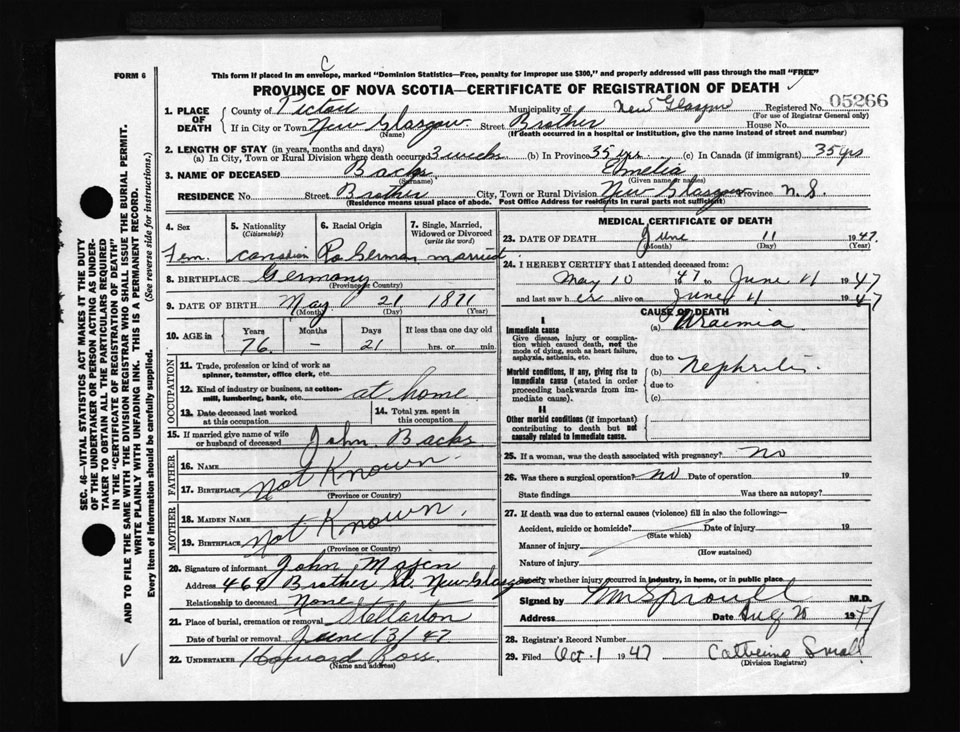 FORM 6
This form if placed in an envelope, marked "Dominion Statistics—Free, penalty for improper use $300," and properly addressed will pass through the mail "FREE"
PROVINCE OF NOVA SCOTIA—CERTIFICATE OF REGISTRATION OF DEATH
1. PLACE OF DEATH County of Pictou Municipality of New Glasgow Registered No. 05266
(For use of Registrar General only)
If in City or Town New Glasgow Street Brother House No.
(Name) (If death occurred in a hospital or institution, give the name instead of street and number)
2. LENGTH OF STAY (in years, months and days)
(a) In City, Town or Rural Division where death occurred 3 weeks (b) In Province 35 yrs. (c) In Canada (if immigrant) 35 yrs
3. NAME OF DECEASED Backs Emelia
(Surname) (Given name or names)
RESIDENCE No. Street Brother City, Town or Rural Division New Glasgow Province N.S
(Residence means usual place of abode. Post Office Address for residents in rural parts not sufficient)
4. Sex
Fem.
5. Nationality
(Citizenship)
Canadian
6. Racial Origin
German
7. Single, Married, Widowed or Divorced
(write the word)
married
8. BIRTHPLACE Germany
(Province or Country)
9. DATE OF BIRTH May 21 1871
(Month) (Day) (Year)
10. AGE in Years Months Days If less than one day old
76 — 21 hrs. or min.
OCCUPATION
11. Trade, profession or kind of work as spinner, teamster, office clerk, etc.
12. Kind of industry or business, as cotton-mill, lumbering, bank, etc. at home
13. Date deceased last worked at this occupation
14. Total yrs. spent in this occupation
15. If married give name of wife or husband of deceased John Backs
FATHER
16. NAME Not Known
17. BIRTHPLACE
(Province or Country)
MOTHER
18. MAIDEN NAME Not Known.
19. BIRTHPLACE
(Province or Country)
20. Signature of informant John
Address 462 Brother St. New Glasgow
Relationship to deceased None
21. Place of burial, cremation or removal Stellarton
Date of burial or removal June 13/47
22. UNDERTAKER Howard Ross.
(Name and address)
MEDICAL CERTIFICATE OF DEATH
23. DATE OF DEATH June 11 1947
(Month) (Day) (Year)
24. I HEREBY CERTIFY that I attended deceased from:
May 10 1947 to June 11 1947
and last saw her alive on June 11 1947
CAUSE OF DEATH
I
Immediate cause
Give disease, injury or complication which caused death, not the mode of dying, such as heart failure, asphyxia, asthenia, etc.
(a) Uraemia
due to
Morbid conditions, if any, giving rise to immediate cause (stated in order proceeding backwards from immediate cause).
(b) Nephritis.
due to
(c)
II
Other morbid conditions (if important) contributing to death but not causally related to immediate cause.
25. If a woman, was the death associated with pregnancy? No
26. Was there a surgical operation? No Date of operation 19
State findings Was there an autopsy?
27. If death was due to external causes (violence) fill in also the following:—
Accident, suicide or homicide? Date of injury 19
(State which)
Manner of injury
(How sustained)
Nature of injury
Specify whether injury occurred in industry, in home, or in public place
Signed by Sproull M.D.
Address Date Aug 20 1947
28. Registrar's Record Number
29. Filed Oct. 1 1947 Catherine Small
(Division Registrar)
SEC. 46—VITAL STATISTICS ACT MAKES IT THE DUTY
OF THE UNDERTAKER OR PERSON ACTING AS UNDER-
TAKER TO OBTAIN ALL THE PARTICULARS REQUIRED
IN THE "CERTIFICATE OF REGISTRATION OF DEATH"
AND TO FILE THE SAME WITH THE DIVISION REGISTRAR WHO SHALL ISSUE THE BURIAL PERMIT.
WRITE PLAINLY WITH UNFADING INK. THIS IS A PERMANENT RECORD.
Every item of information should be carefully supplied. (See reverse side for instructions.)